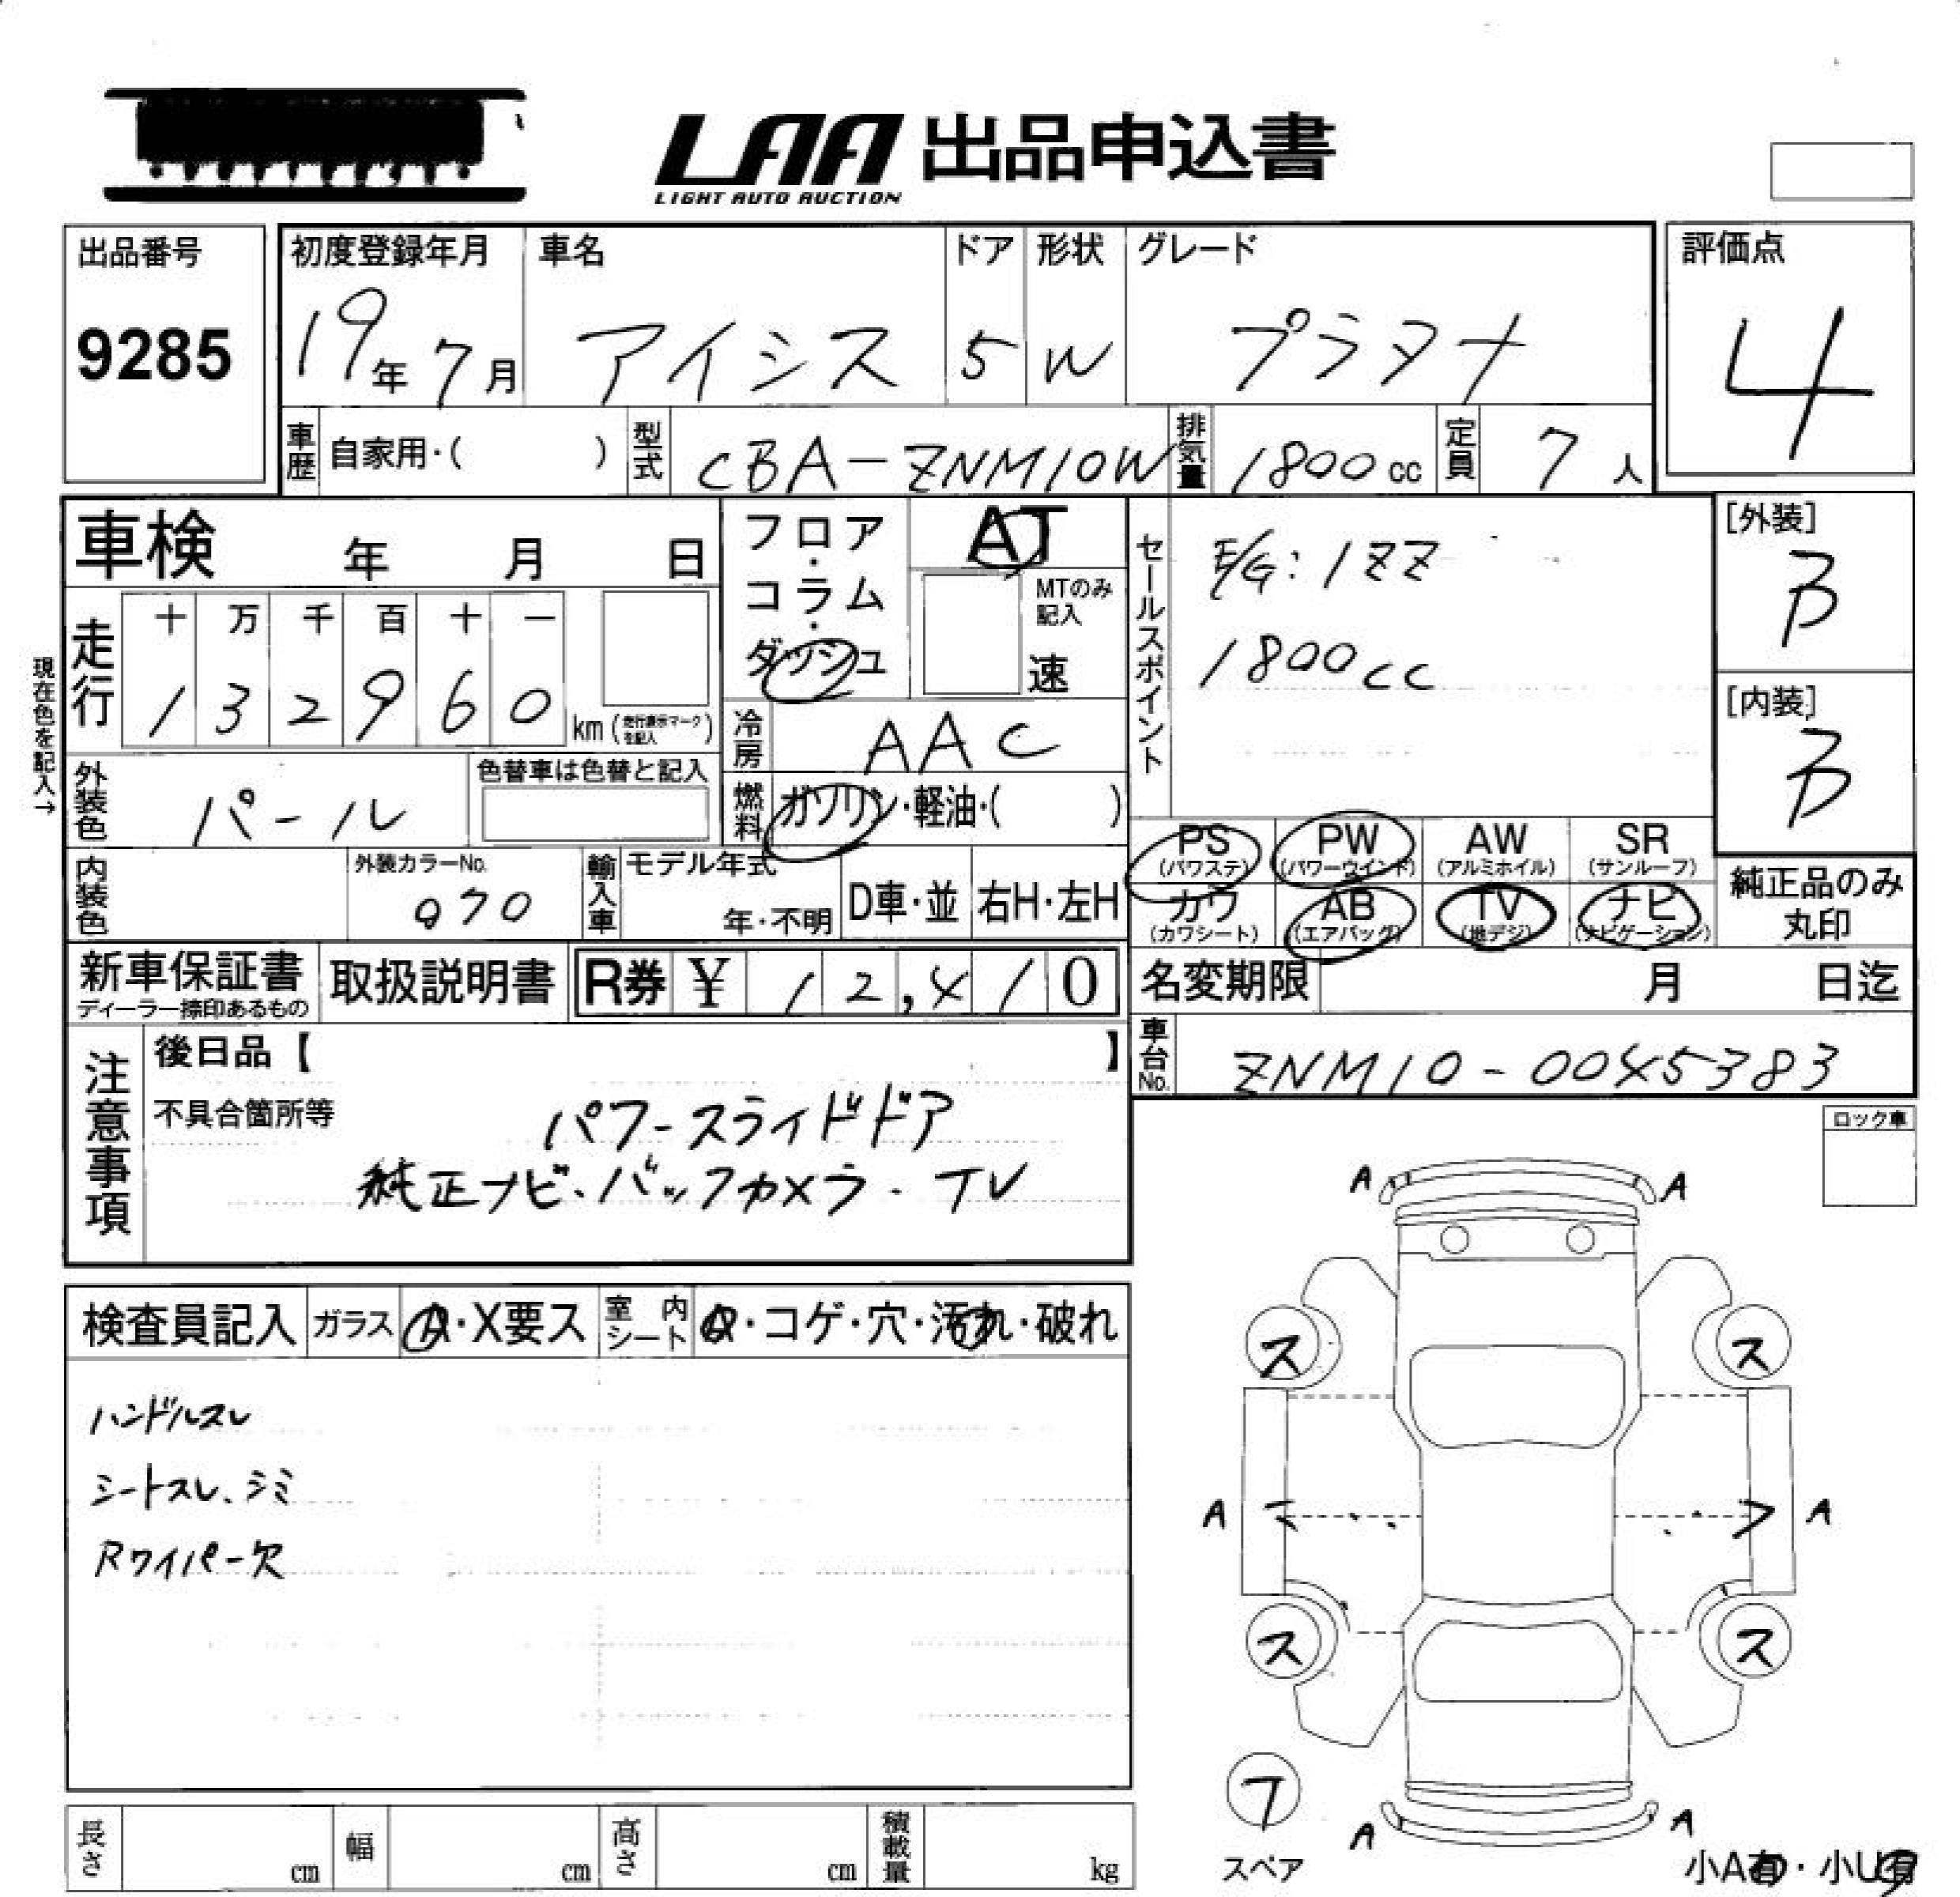 LAA 出品申込書
LIGHT AUTO AUCTION
出品番号
9285
初度登録年月
19年 7月
車名
アイシス
ドア
5
形状
W
グレード
プラタナ
評価点
4
車歴 自家用・( )
型式 CBA-ZNM10W
排気量 1800cc
定員 7人
車検 年 月 日
フロア・コラム・ダッシュ
AT
MTのみ記入
速
セールスポイント
E/G:1ZZ
1800cc
[外装]
B
[内装]
B
現在色を記入→
走行
十 万 千 百 十 一
1 3 2 9 6 0 km (走行表示マークを記入)
冷房 AAC
外装色 パール
色替車は色替と記入
燃料 ガソリン・軽油・( )
PS (パワステ)
PW (パワーウインド)
AW (アルミホイル)
SR (サンルーフ)
カワ (カワシート)
AB (エアバッグ)
TV (地デジ)
ナビ (ナビゲーション)
純正品のみ
丸印
内装色
外装カラーNo.
070
輸入車
モデル年式
年・不明
D車・並
右H・左H
新車保証書
ディーラー捺印あるもの
取扱説明書
R券 ¥ 12,410
名変期限 月 日迄
車台No. ZNM10-0045383
注意事項
後日品【 】
不具合箇所等
パワースライドドア
純正ナビ・バックカメラ・TV
ロック車
検査員記入
ガラス A・X要ス
室内シート ・コゲ・穴・汚れ・破れ
ハンドルスレ
シートスレ、シミ
Rワイパー欠
A A
ス ス
A A
ス ス
フ
スペア
A A
小A有・小U有
長さ cm
幅 cm
高さ cm
積載量 kg